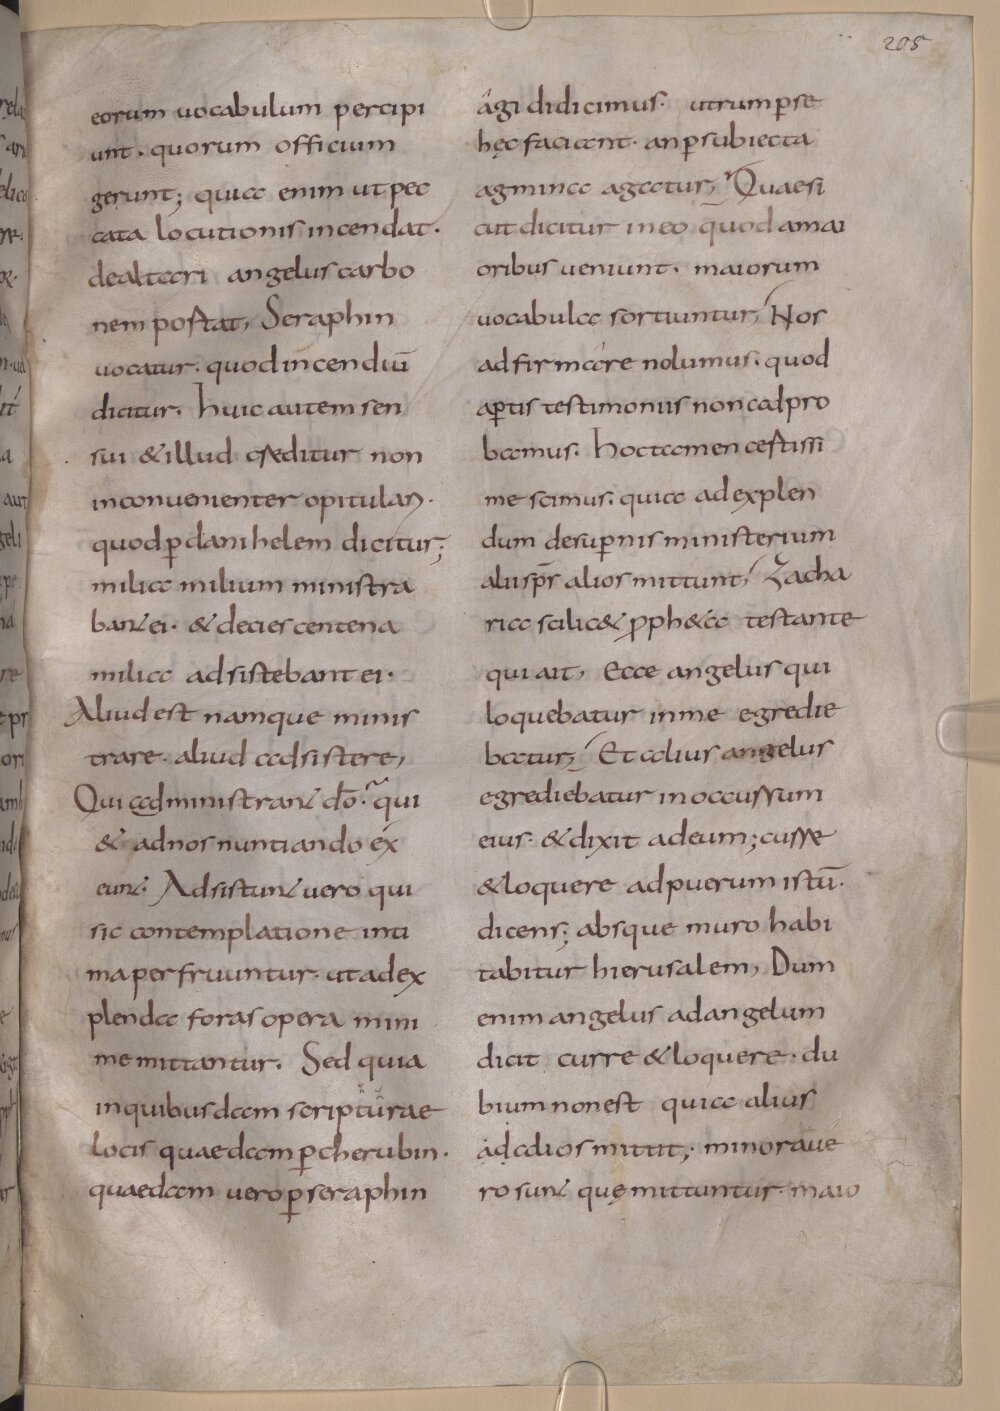 205
eorum vocabulum percipi
unt. quorum officium
gerunt; quia enim ut pec
cata locutionis incendat.
de altari angelus carbo
nem portat, Seraphin
vocatur. quod incendiū
dicitur. huic autem sen
sui & illud creditur non
inconvenienter opitulari.
quod ꝑ danihelem dicitur;
milia milium ministra
bant ei. & decies centena
milia adsistebant ei.
Aliud est namque minis
trare. aliud adsistere,
Qui administrant dō. qui
& ad nos nuntiando éx
eunt. Adsistunt vero qui
sic contemplatione inti
ma perfruuntur. ut ad ex
plenda foras opera mini
me mittantur. Sed quia
in quibusdam scripturae
locis quaedam ꝑ cherubin.
quaedam vero ꝑ seraphin
ági didicimus. utrum ꝑ se
hęc faciant. an ꝑ subiecta
agmina agatur, Quae si
cut dicitur in eo quod a mai
oribus veniunt. maiorum
vocabula sortiuntur, Nos
adfirmare nolumus. quod
aꝑtis testimoniis non adpro
bamus. hoc tamen certissi
me scimus. quia ad explen
dum de suꝑnis ministerium
alii sp̄s alios mittunt, Zacha
ria scilic& ꝓph&a testante
qui ait, Ecce angelus qui
loquebatur in me egredie
batur, Et alius angelus
egrediebatur in occussum
eius. & dixit ad eum; cusse
& loquere ad puerum istū.
dicens; absque muro habi
tabitur hierusalem, Dum
enim angelus ad angelum
dicit curre & loquere. du
bium non est quia alius
ad alios mittit; minora ve
ro sunt quę mittuntur. maio